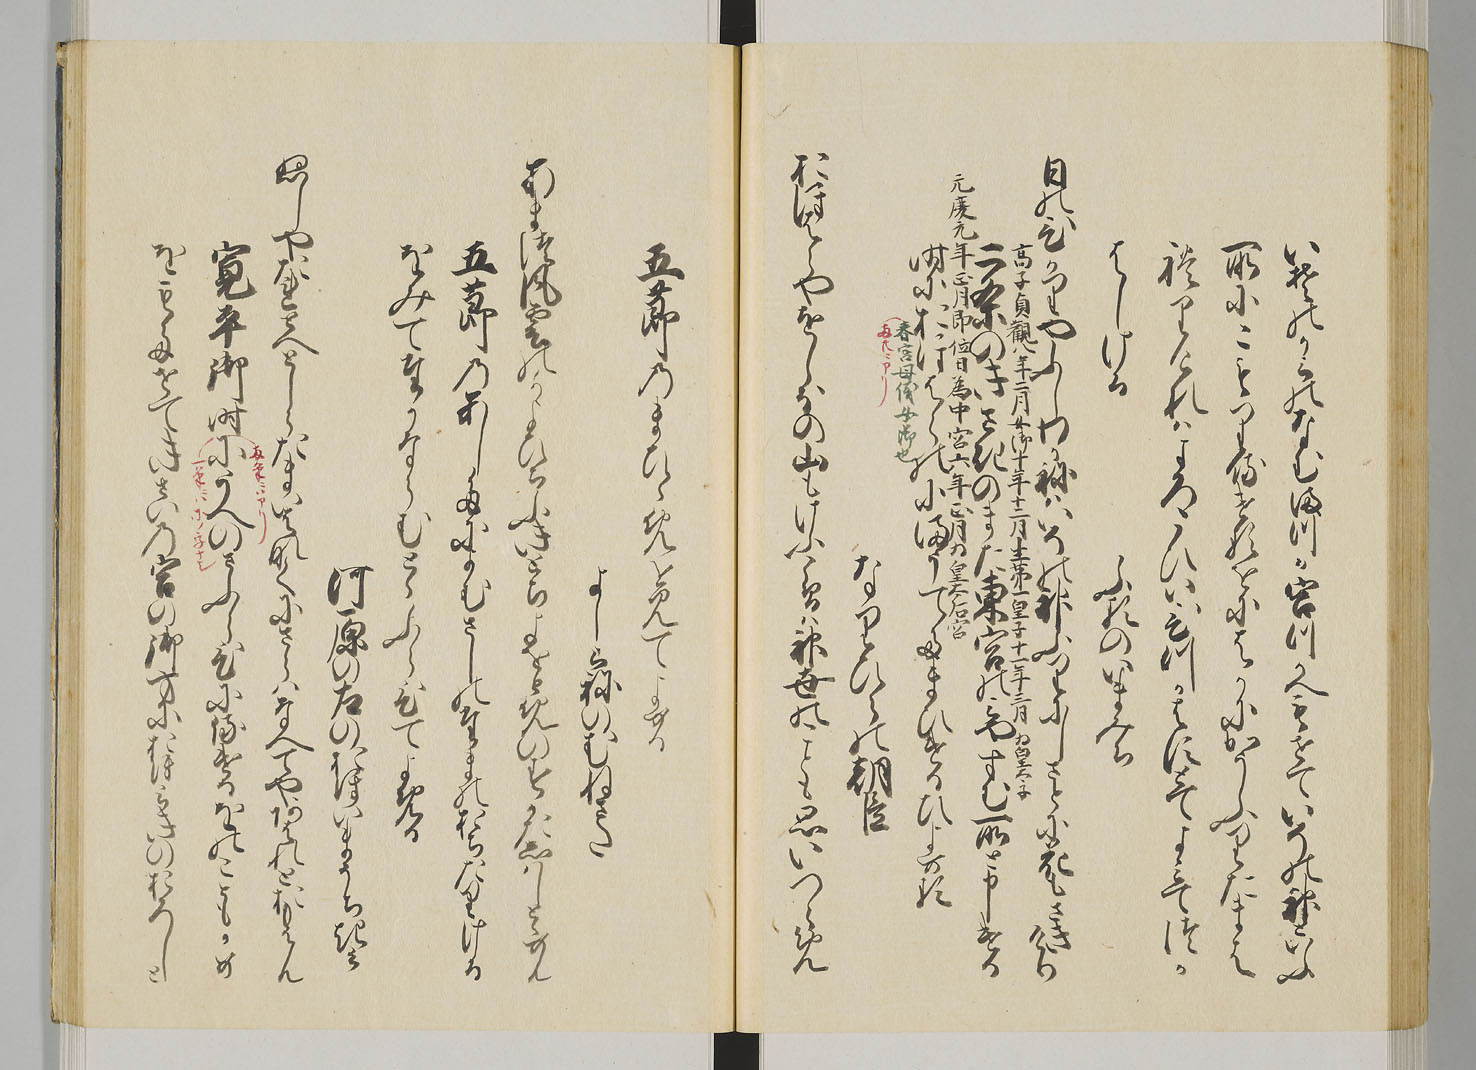 いそのかみのなむまつか宮つかへもせていその神といふ
所にこもり侍けるをにはかにかうふりたまは
れりけれはよろこひいひつかはすとてよみてつか
はしける　ふるのいまみち
日のひかりやふしわかねはいその神ふりにしさとに花もさきけり
高子貞觀八年二月女御十年十二月生第一皇子十一年二月為皇太子
二条のきさきのまた東宮のみやすむ所と申ける
元慶元年正月即位日為中宮六年正月為皇太后宮
時におほはらのにまうてたまひける日よめる
春宮母儀女御也
なりひらの朝臣
おほはらやをしほの山もけふこそは神世のことも思いつらめ
五節のまひひめを見てよめる
よしみねのむねさた
あまつ風雲のかよひちふきとちよをとめのすかたしはしとゝめん
五節のあしたにかむさしのたまのおちたりける
をみてたかならむとゝふらひてよめる
河原の左のおほいまうちきみ
ぬしやたれとへとしらたまいはなくにさらはなへてやあはれとおもはん
寛平御時にうへのさふらひに侍けるをのこともかめ
をもたせてきさいの宮の御方におほみきのおろしと